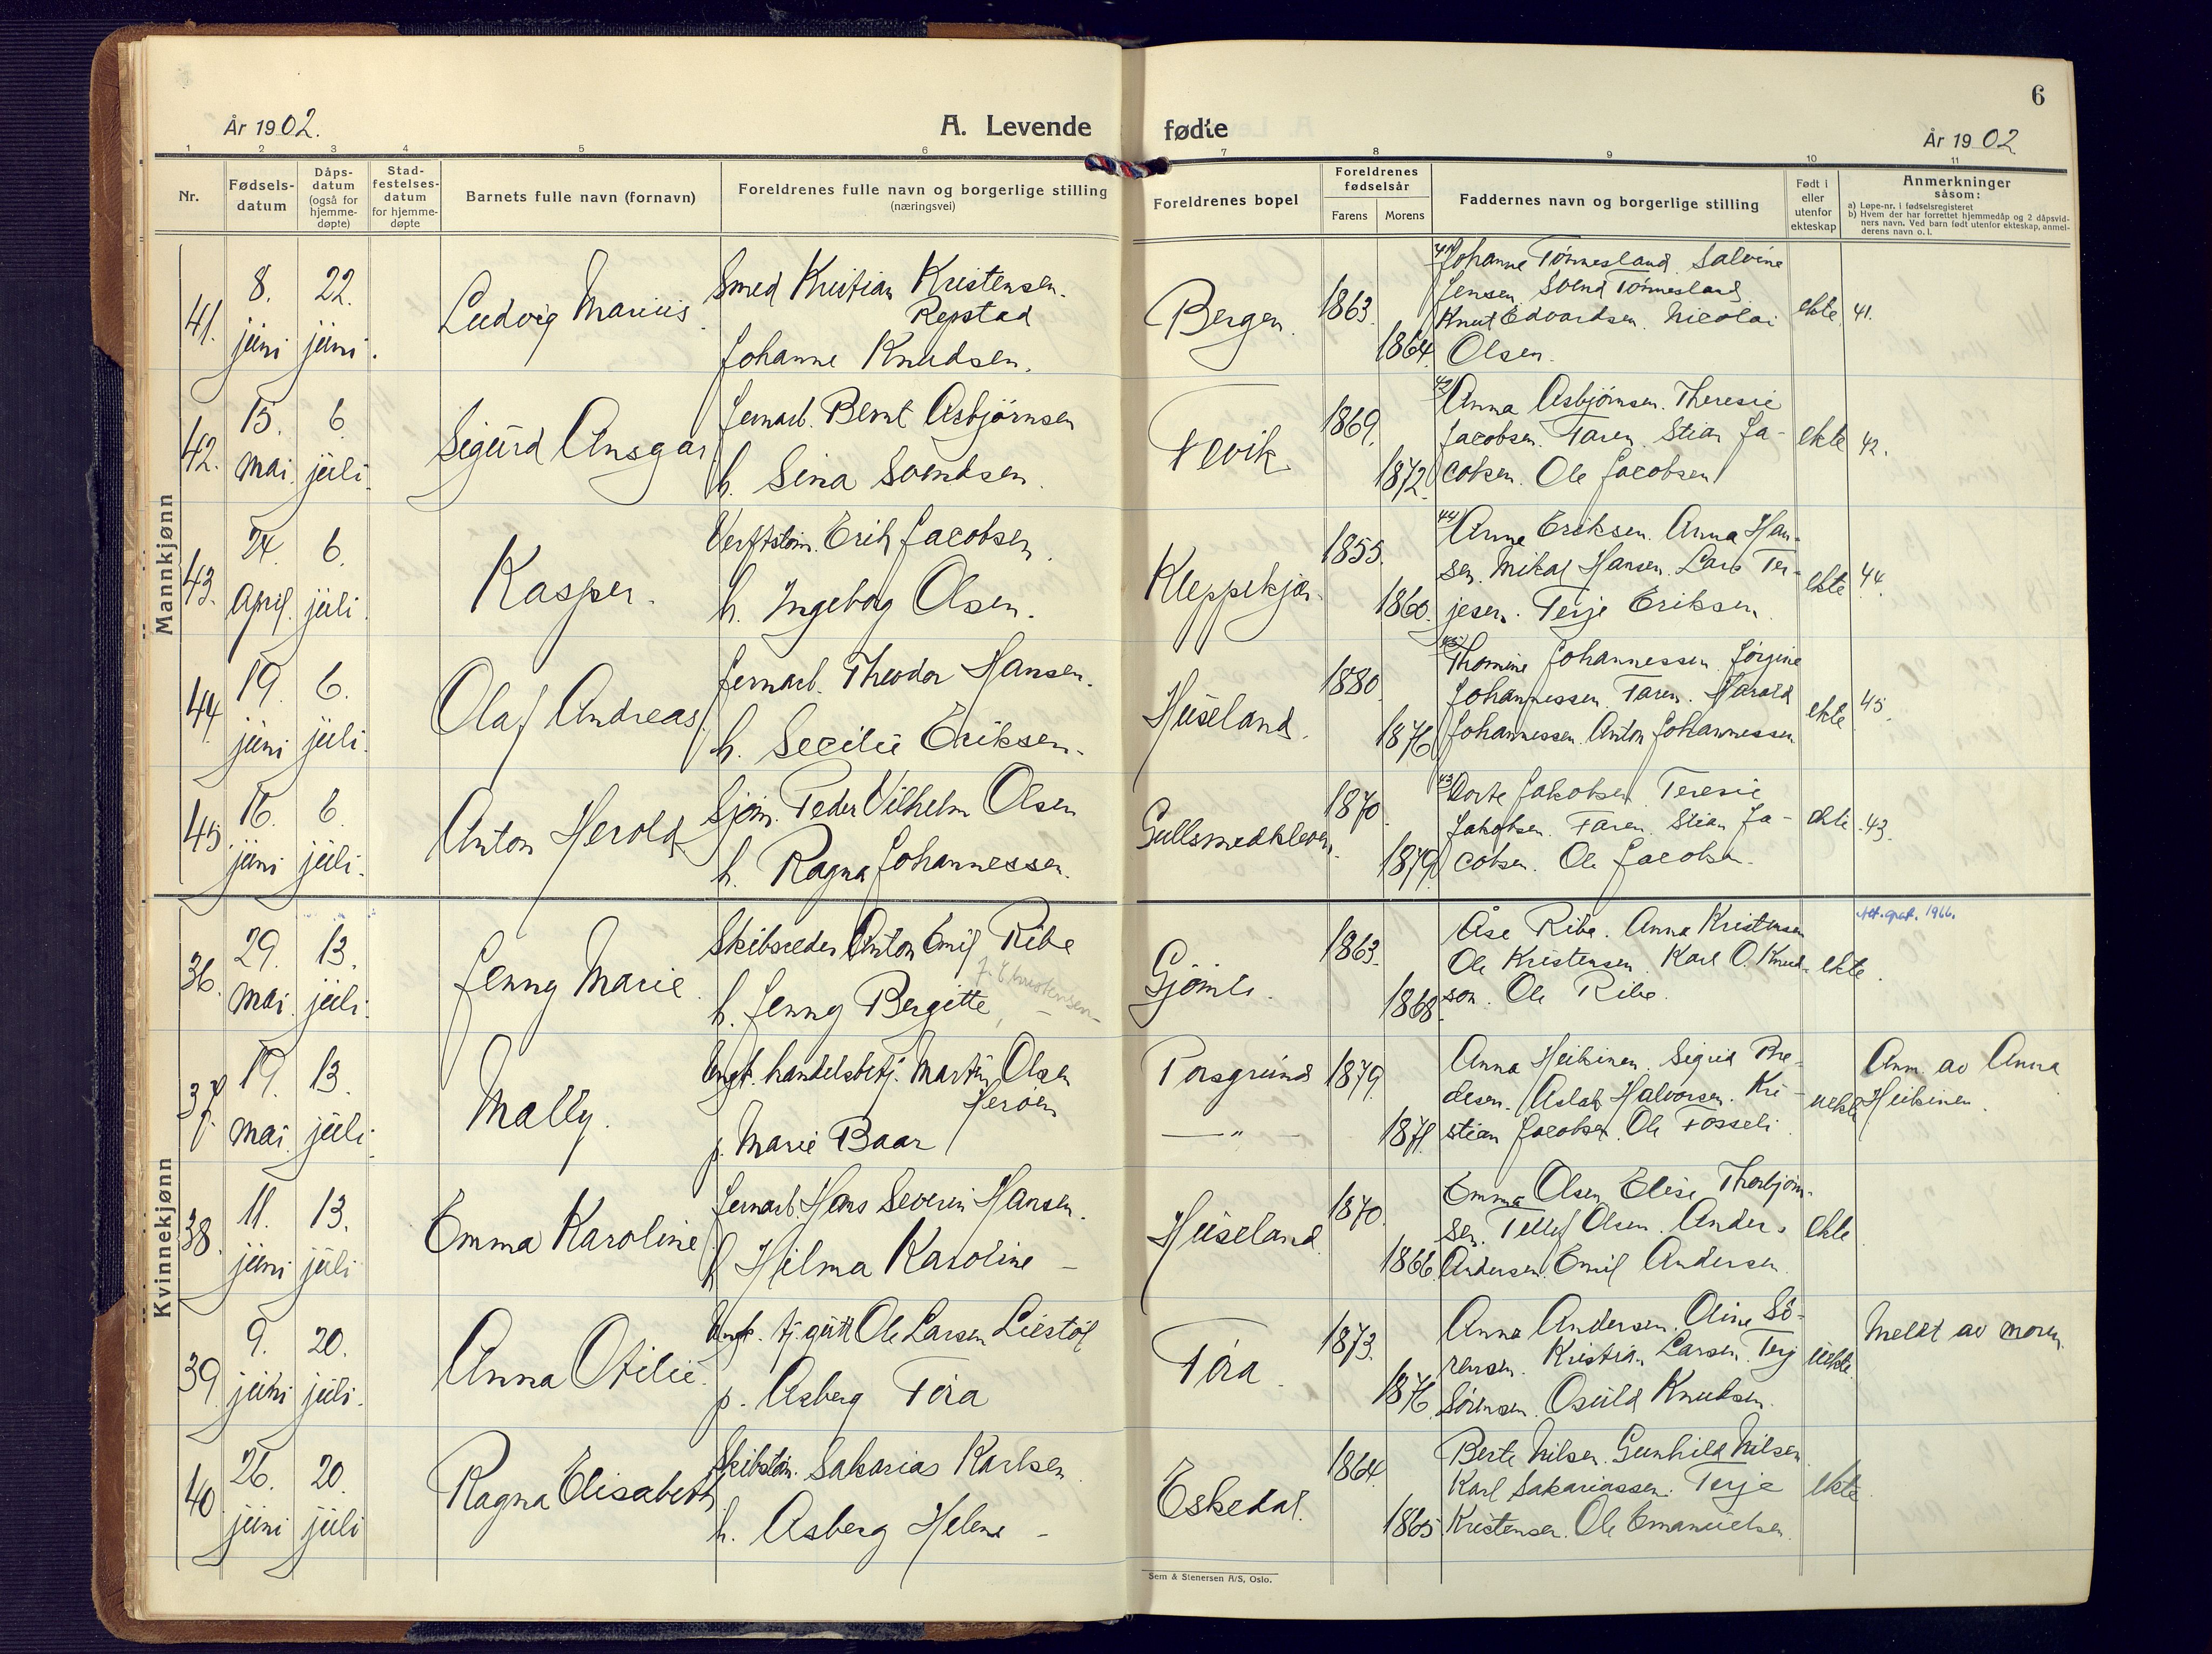 År 1902.
A. Levende
fødte
År 1902
6
1 2 3 4 5 6 7 8 9 10 11
Nr.
Fødsels-
datum
Dåps-
datum
(også for
hjemme-
døpte)
Stad-
festelses-
datum
for hjemme-
døpte
Barnets fulle navn (fornavn)
Foreldrenes fulle navn og borgerlige stilling
(næringsvei)
Foreldrenes bopel
Foreldrenes
fødselsår
Farens
Morens
Faddernes navn og borgerlige stilling
Født i
eller
utenfor
ekteskap
Anmerkninger
såsom:
a) Løpe-nr. i fødselsregisteret
b) Hvem der har forrettet hjemmedåp og 2 dåpsvid-
ners navn. Ved barn født utenfor ekteskap, anmel-
derens navn o. l.
Mannkjønn
41.
8. juni
22. juni.
Ludvig Marius.
Smed Kristian Kristensen.
Repstad
Johanne Knudsen.
Bergen.
1863.
1864.
41) Johanne Tønnesland. Salvine
Jensen. Svend Tønnesland
Knut Edvardsen. Nicolai
Olsen.
ekte
41.
42.
15. mai
6. juli.
Sigurd Ansgar
Jernarb. Bernt Asbjørnsen
h. Sina Svendsen.
Nevik
1869.
1872.
42) Anna Asbjørnsen. Theresie
Jacobsen. Faren. Stian Ja-
cobsen. Ole Jacobsen
ekte
42.
43.
24. April.
6. juli.
Kasper.
Verftstøm. Erik Jacobsen.
h. Ingeborg Olsen.
Kleppekjær.
1855.
1860.
44) Anne Eriksen. Anna Han-
sen. Mikal Hansen. Lars Ter-
jesen. Terje Eriksen.
ekte
44.
44.
19. juni
6. juli.
Olaf Andreas.
Jernarb. Theodor Hansen.
h. Secilie Eriksen.
Huseland.
1880.
1876
45) Thomine Johannessen. Jørgine
Johannessen. Faren. Harald
Johannessen. Anton Johannessen
ekte
45.
45
16. juni
6. juli.
Anton Herold
Sjøm. Peder Vilhelm Olsen
h. Ragna Johannessen.
Gullsmedkleven.
1870.
1879
43) Dorte Jakobsen. Teresie
Jakobsen. Faren. Stian Ja-
cobsen. Ole Jacobsen.
ekte
43.
Kvinnekjønn
36.
29. mai.
13. juli.
Jenny Marie.
Skibsreder Anton Emil Ribe
h. Jenny Bergitte f. Christensen
Gjømle.
1863.
1868.
Åse Ribe. Anna Kristensen
Ole Kristensen. Karl O. Knud-
son. Ole Ribe.
ekte.
1966.
37
19. mai
13. juli.
Mally.
Ungk. handelsbetj. Martin Olsen
Herøen
p. Marie Baar
Porsgrund
— " —
1879.
1871.
Anna Heikinen. Sigrid Pe-
dersen. Aslak Halvorsen. Kri-
stian Jacobsen. Ole Fosseli.
uekte
Anm. av Anna
Heikinen.
38.
11. juni
13. juli
Emma Karoline
Jernarb. Hans Severin Hansen.
h. Hilma Karoline –
Huseland.
1870.
1866.
Emma Olsen. Elise Thorbjørn-
sen. Tellef Olsen. Anders
Andersen. Emil Andersen.
ekte
39.
9. juni
20. juli.
Anna Otilie.
Ungk. tj.gutt Ole Larsen Liestøl
p. Asberg Tora
Tora.
1873.
1876.
Anna Andersen. Oline Sø-
rensen. Kristian Larsen. Terj
Sørensen. Osuld Knudsen.
uekte.
Meldt av moren.
40
26. juni
20. juli
Ragna Elisabeth
Skibstøm. Sakarias Karlsen
h. Asberg Helene –
Eskedal.
1864.
1865.
Berte Nilsen. Gunhild Nilsen
Karl Sakariassen. Terje
Kristensen. Ole Emanuelsen.
ekte.
Sem & Stenersen A/S, Oslo.